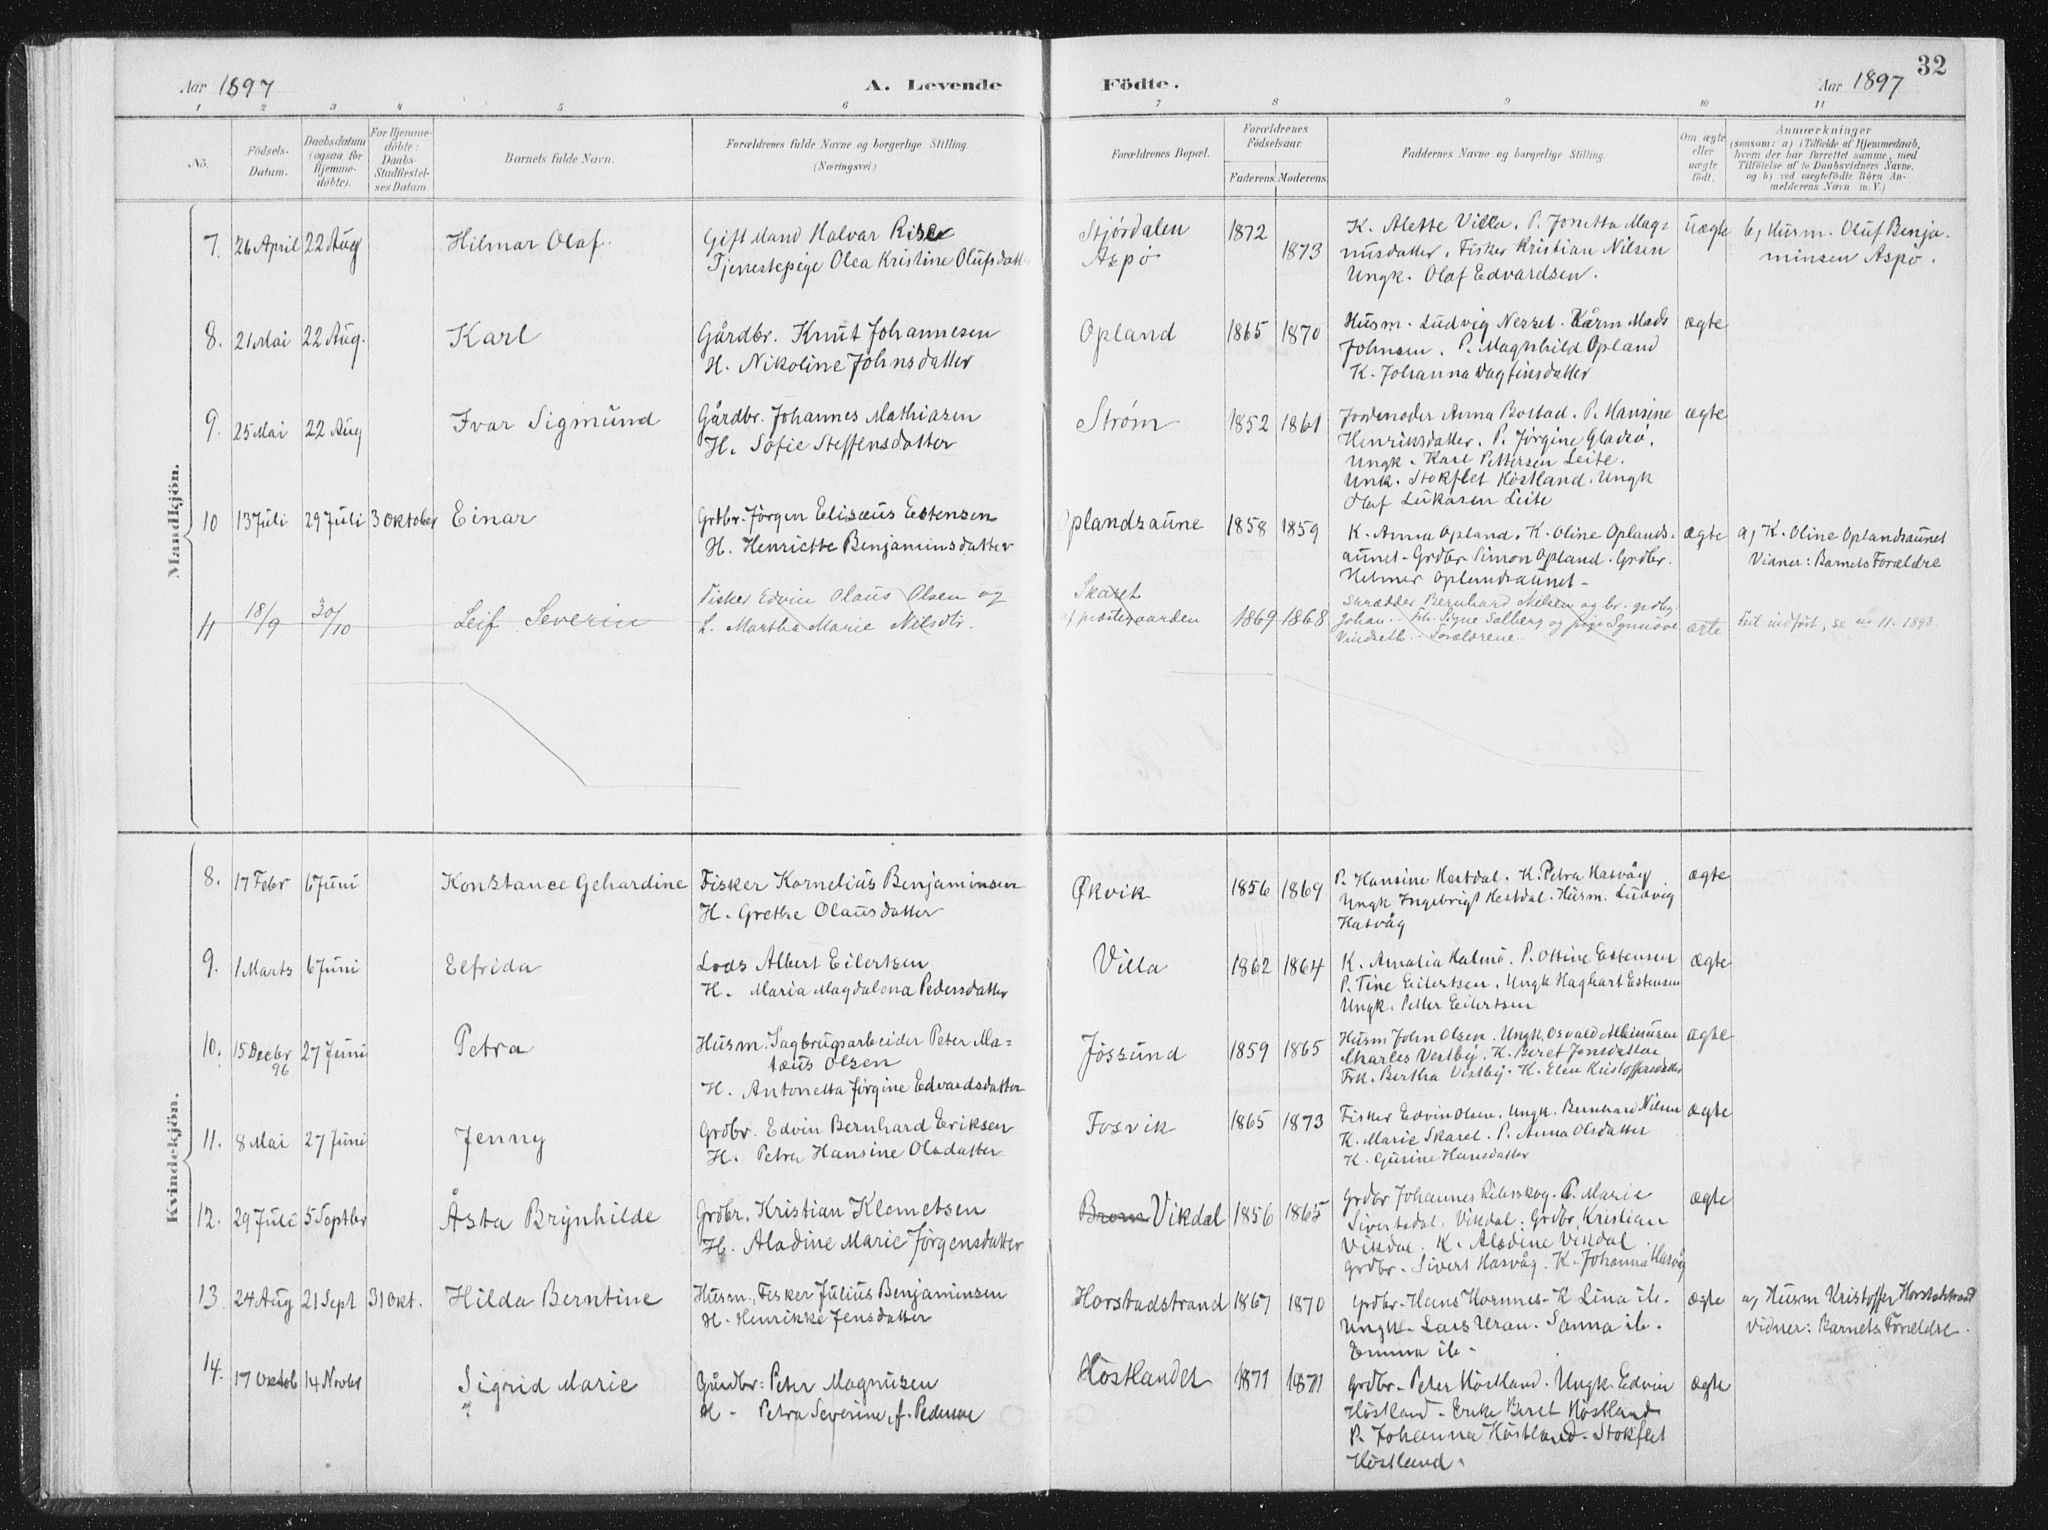 Aar 1897
A. Levende
Födte.
Aar 1897
32
1 2 3 4 5 6 7 8 9 10 11
No.
Födsels-
Datum.
Daabsdatum
(ogsaa for
Hjemme-
döbte).
For Hjemme-
döbte:
Daabs-
Stadfæstel-
ses Datum.
Barnets fulde Navn.
Forældrenes fulde Navne og borgerlige Stilling.
(Næringsvei.)
Forældrenes Bopæl.
Forældrenes
Födselsaar.
Faderens. Moderens.
Faddernes Navne og borgerlige Stilling.
Om ægte
eller
uægte
födt.
Anmærkninger
(saasom: a) i Tilfælde af Hjemmedaab,
hvem der har forrettet samme, med
Tilföielse af to Daabsvidners Navne,
og b) ved uægtefödte Börn An-
melderens Navn m. V.)
Mandkjön.
7. 26 April 22 Aug Hilmar Olaf.
Gift Mand Halvar Rise
Tjenestepige Olea Kristine Olufsdatt
Stjørdalen
Aspø
1872
1873
K. Alette Villa. P. Jonetta Mag-
nusdatter. Fisker Kristian Nilsen
Ungk. Olaf Edvardsen.
uægte
b, Husm. Oluf Benja-
minsen Aspø.
8. 21 Mai 22 Aug. Karl
Gårdbr. Knut Johannesen
H. Nikoline Johnsdatter
Opland
1865 1870
Husm. Ludvig Nesset. Kårm Mads
Johnsen. P. Magnhild Opland
K. Johanna Dagfinsdatter
ægte
9. 25 Mai 22 Aug Ivar Sigmund
Gårdbr. Johannes Mathiasen
H. Sofie Steffensdatter
Strøm
1852 1861
Jordemoder Anna Bostad. P. Hansine
Henriksdatter. P. Jørgine Gladsø.
Ungk. Karl Pettersen Leite.
Unk. Stokflet Høstland. Ungk
Olaf Lukasen Leite
ægte
10 13 Juli 29 Juli 3 Oktober Einar
Grdbr. Jörgen Elisæus Estensen
H. Henriette Benjaminsdatter
Oplandsaune
1858 1859
K. Anna Opland. K. Oline Oplands-
aunet - Grdbr Simon Opland. Grdbr.
Helmer Oplandsaunet -
ægte
a, K. Oline Oplandsaunet
Vidner: Barnets Forældre
11 18/9 30/10 Leif Severin
Fisker Edvin Olaus Olsen og
h. Martha Marie Nilsdtr.
Skaret
af præstegaarden
1869 1868
Skrædder Bernhard Nielsen og br. grdbr.
Johan. Frk. Signe Solberg og pige Synnöve
Vindseth. Forældrene.
ægte
Feil indført, se no 11. 1898.
Kvindekjön.
8. 17 Febr 6 Juni Konstance Gehardine
Fisker Kornelius Benjaminsen
H. Grethe Olausdatter
Økvik
1856 1869
P. Hansine Hestdal. K. Petra Hasvåg
Ungk Ingebrigt Hestdal. Husm. Ludvig
Hasvåg
ægte
9. 1 Marts 6 Juni Elfrida
Lods Albert Eilertsen
H. Maria Magdalena Pedersdatter
Villa
1862 1864
K. Amalia Halmø. P. Ottine Estensen
P. Tine Eilertsen. Ungk Haghart Estensen
Ungk. Petter Eilertsen
ægte
10. 15 Decbr 96 27 Juni Petra
Husm. Sagbrugsarbeider Peter Ma-
tæus Olsen
H. Antonetta Jørgine Edvardsdatter
Jøssund
1859 1865
Husm John Olsen. Ungk. Osvald
Charles Vestby. K. Beret Jonsdatter
Frk. Bertha Vestby. K. Elen Kristoffersdatter
ægte
11. 8 Mai 27 Juni Jenny
Grdbr. Edvin Bernhard Eriksen
H. Petra Hansine Olsdatter
Fosvik
1865 1873
Fisker Edvin Olsen. Ungk. Bernhard Nilsen
K. Marie Skaret. P. Anna Olsdatter
K. Gurine Hansdatter
ægte
12. 29 Juli 5 Septbr Åsta Brynhilde
Grdbr. Kristian Klemetsen
H. Aladine Marie Jørgensdatter
Brom Vikdal
1856 1865
Grdbr Johannes Ribsskog. P. Marie
Sivertsdal. Vikdal: Grdbr. Kristian
Vikdal. K. Aladine Vikdal
Grdbr. Sivert Hasvåg. K. Johanna Hasvåg
ægte
13 24 Aug 21 Sept 31 Okt. Hilda Berntine
Husm. Fisker Julius Benjaminsen
H. Henrikke Jensdatter
Horstadstrand
1867 1870
Grdbr. Hans Hornnes - K Lina ib.
Ungk. Lars Uran. Sanna ib.
Emma ib.
ægte
a, Husm Kristoffer Horstadstrand
Vidner: Barnets Forældre.
14. 17 Oktob 14 Novbr Sigrid Marie
Gårdbr: Peter Magnusen
H - Petra Severine, f. Pedersen
Høstlandet
1871 1871
Grdbr. Peter Høstland. Ungk. Edvin
Høstland - Enke Beret Høstland
P. Johanna Høstland. Stokflet
Høstland.
ægte